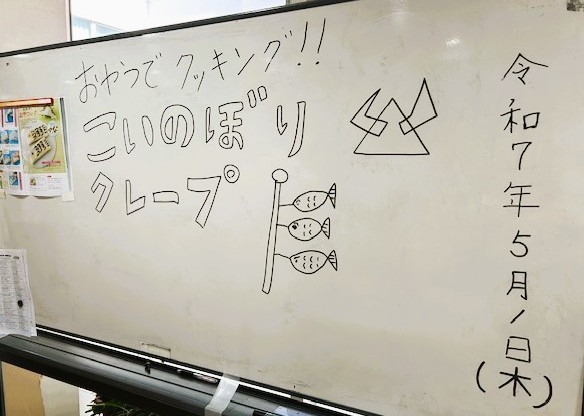 おやつでクッキング!!
こいのぼり
クレープ
令和7年5月1日(木)